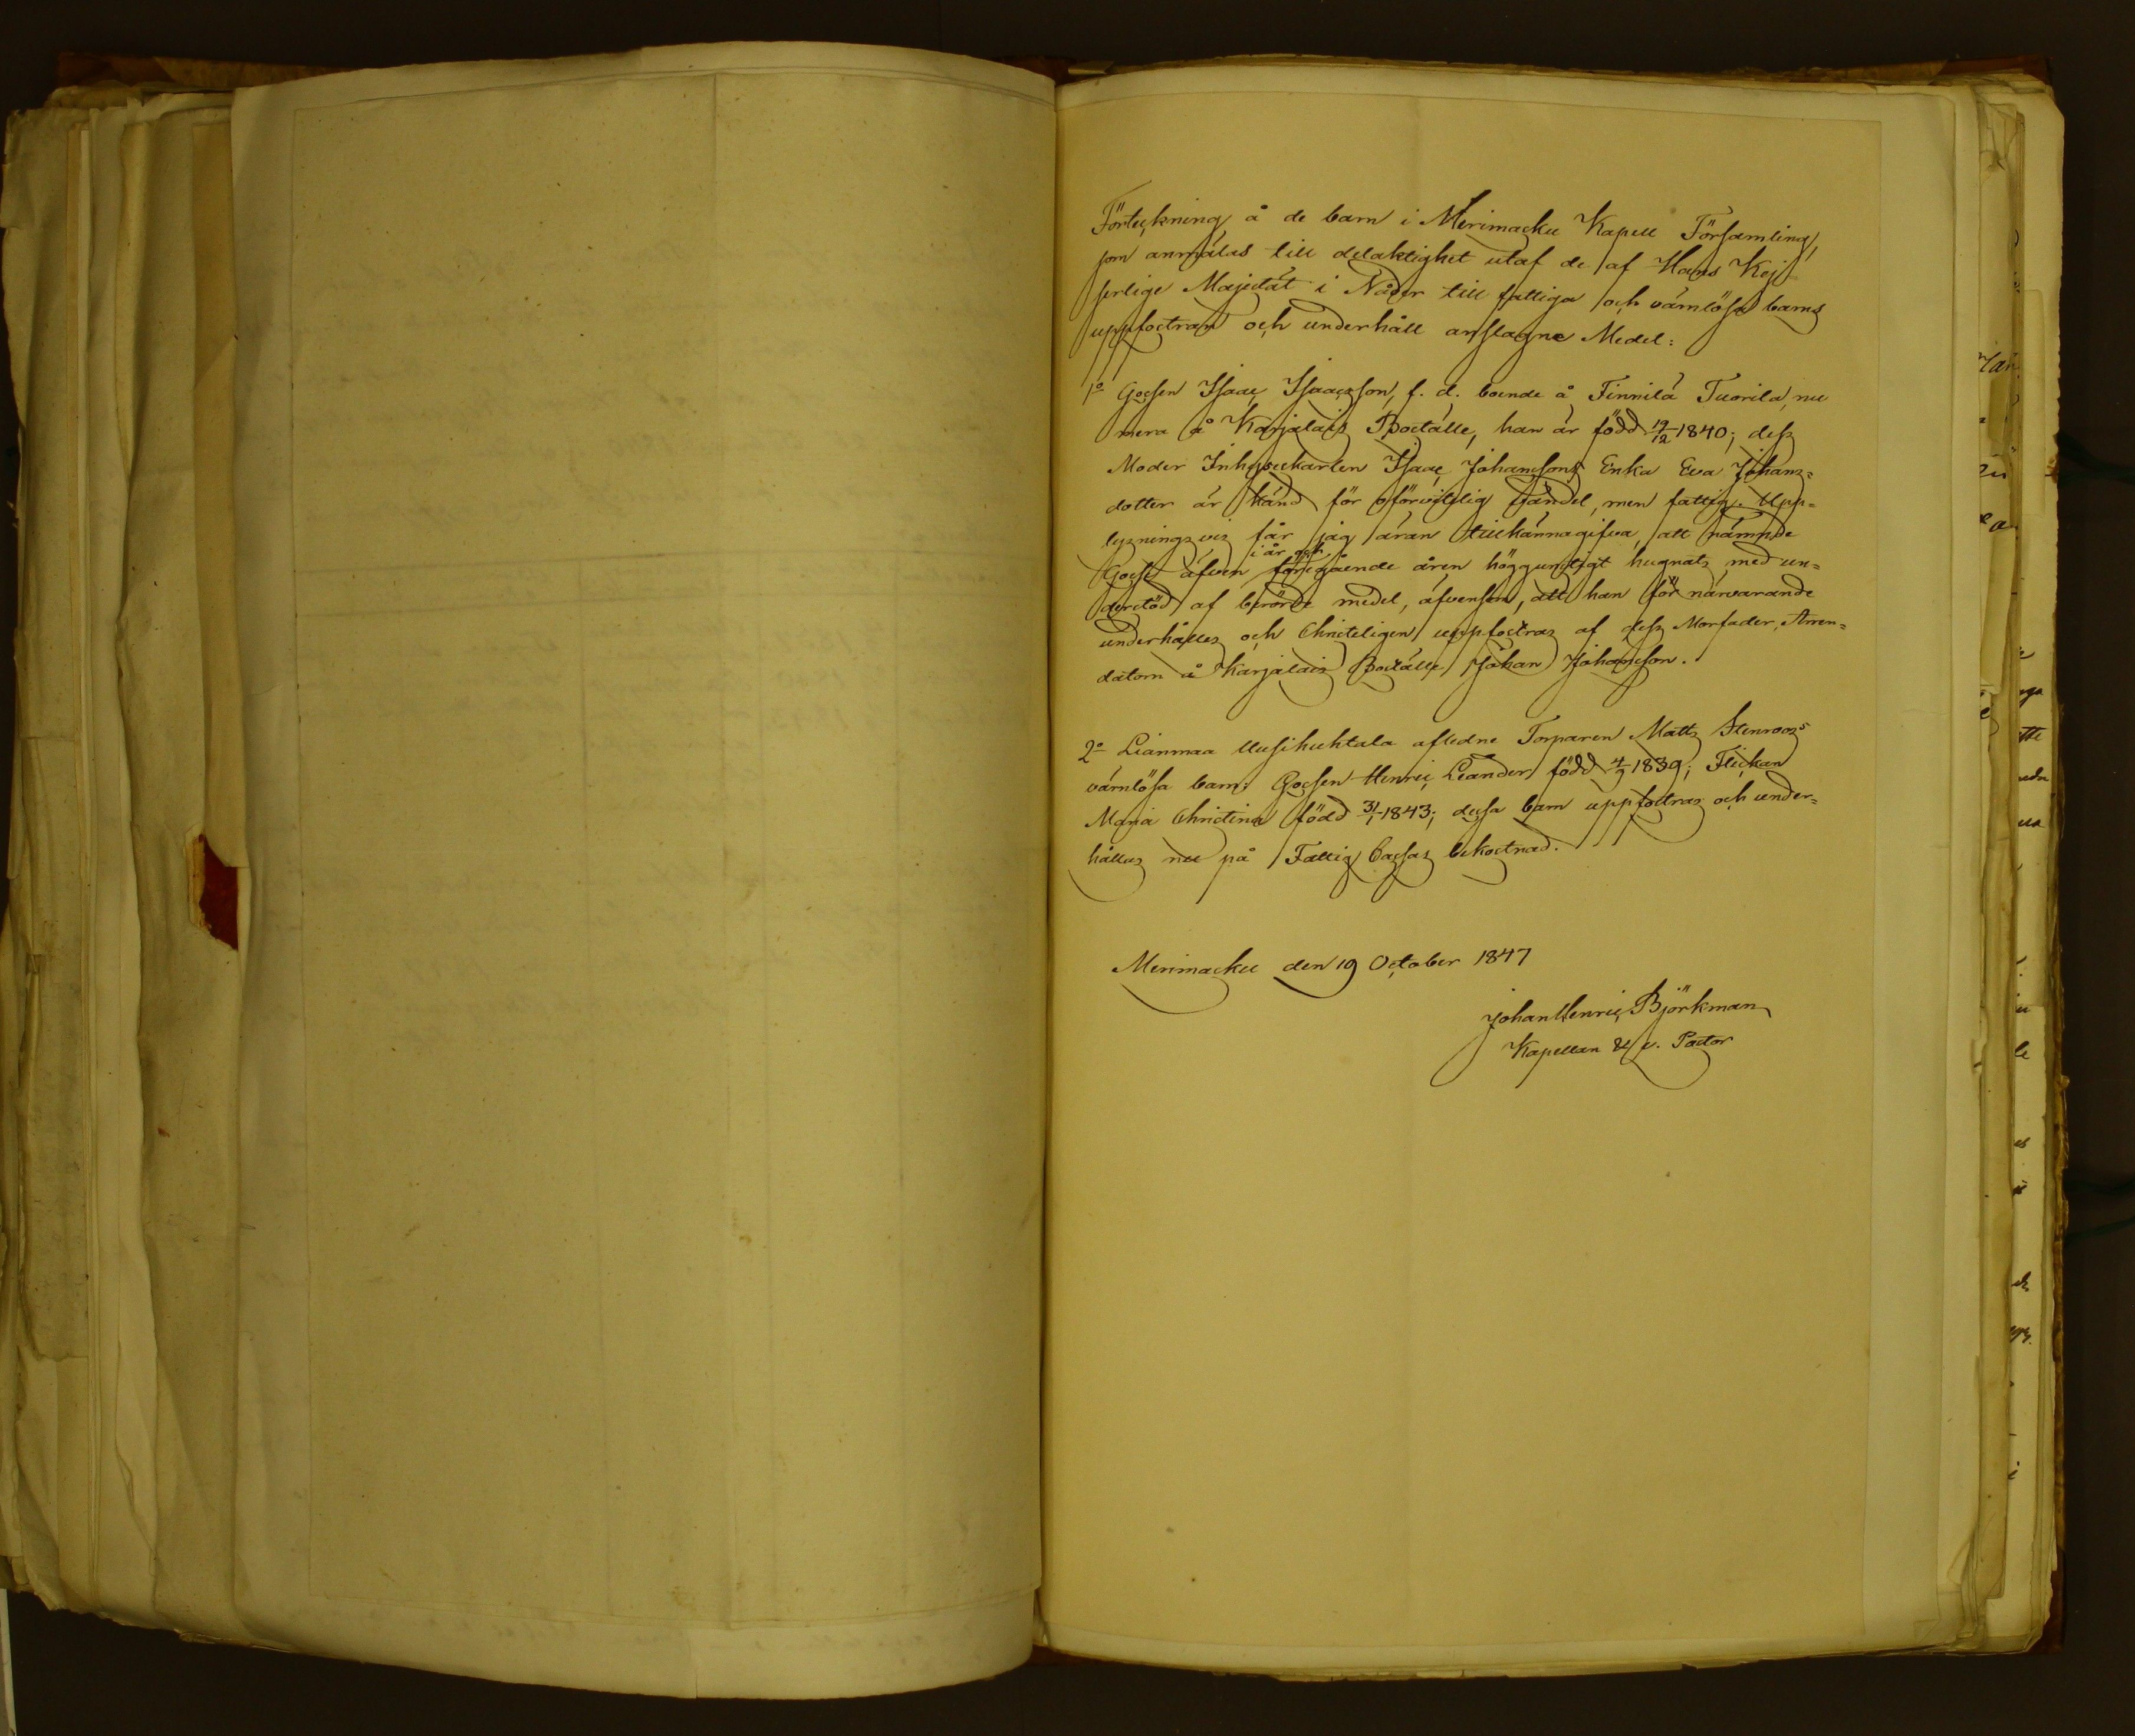 Förteckning å de barn i Merimacku Kapell Församling,
som anmälas till delaktighet utaf de af Hans Kej
serlige Majestät i Nåder till fattiga och värnlösa barns
uppfostran och underhåll anslagne Medel:
1º Gossen Isaac Isaacsson, f. d. boende å Finnilä Tuorila, nu
mera å Karjalais Boställe, han är född 19/12 1840; dess
Moder Inhysekarlen Isaac Johanssons Enka Eva Johans=
dotter är känd för oförvitelig vandel, men fattig. Upp=
lysningsvis får jag äran tillkännagifva, att nämnde
i år och
Gosse äfven föregående åren höggunstigt hugnats med un=
derstöd af berörde medel, äfvensom, att han för närvarande
underhålles och Christeligen uppfostras af dess Morfader, Arren=
datorn å Karjalais Boställe Johan Johansson.
2º Lianmaa Uusihuhtala aflidne Torparen Matts Stenroos's
värnlösa barn: Gossen Henric Leander född 4/9 1839; Flickan
Maria Christina född 31/1 1843; dessa barn uppfostras och under=
hållas nu på Fattig Cassas bekostnad.
Merimacku den 19 October 1847
Johan Henric Björkman
Kapellan & v. Pastor